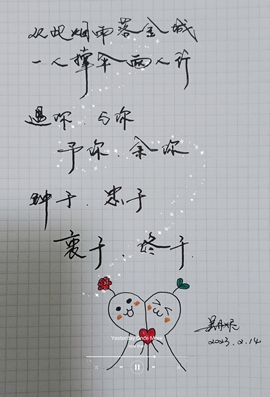 从此烟雨落金城
一人撑伞两人行
遇你、与你
予你、余你
钟于、忠于
衷于、终于
Yesterday Once More
2023.2.14